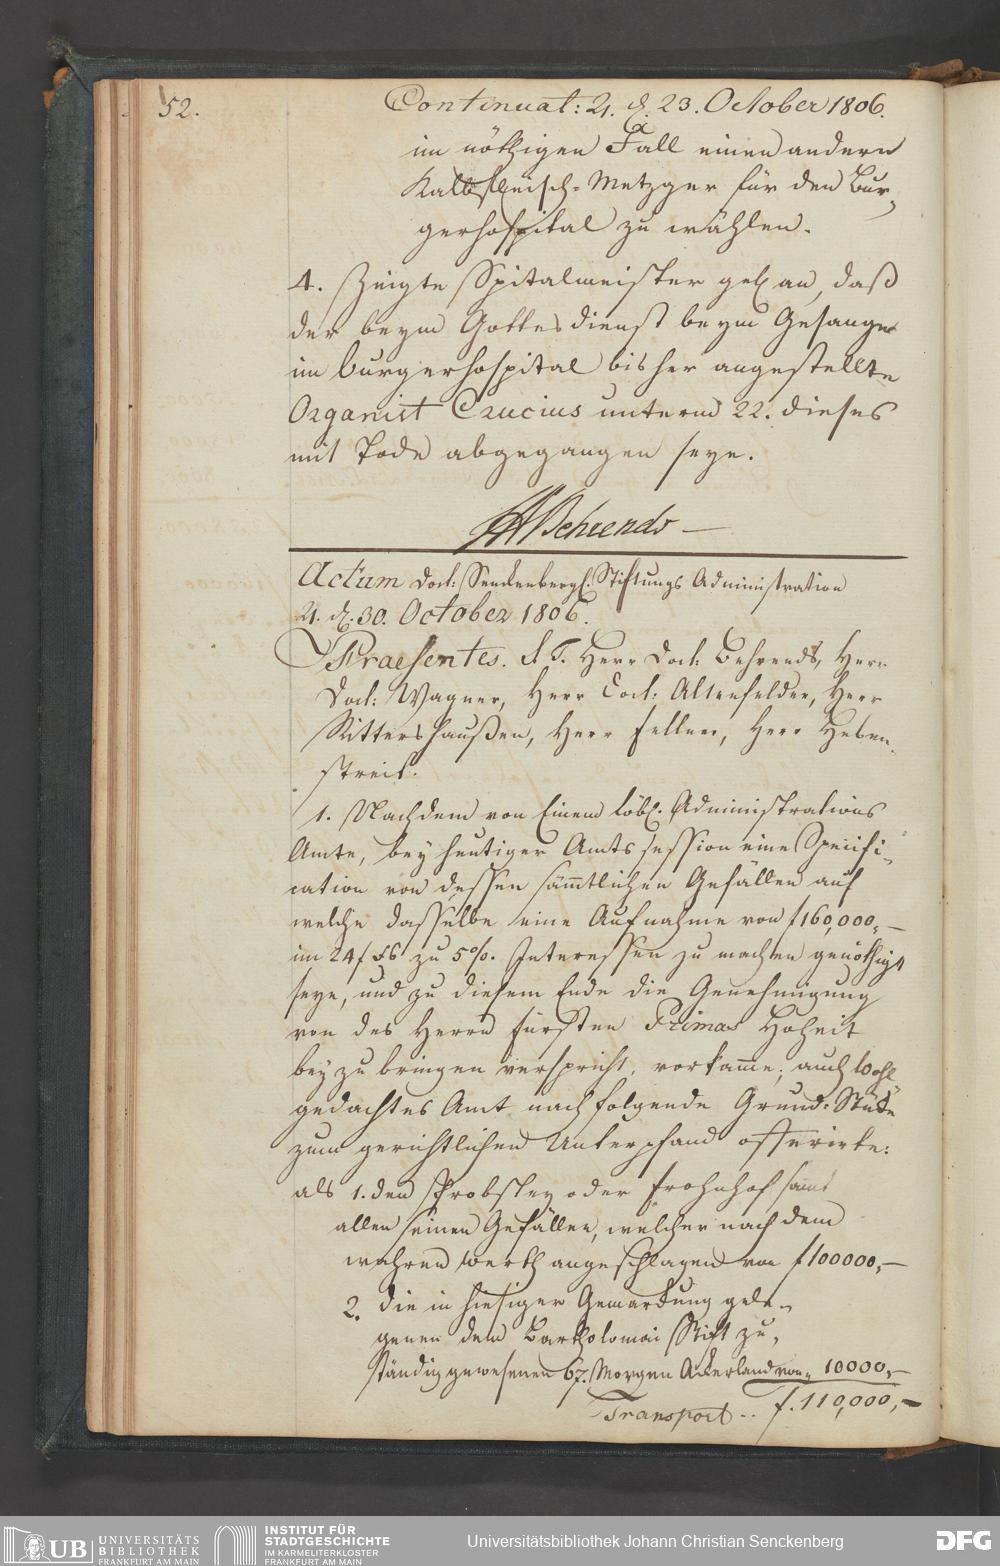 52.
Continuat: 4. d. 23. October 1806.
im nöthigen Fall einen andern
Kalbfleisch-Metzger für den Bur,,
gerhospital zu wählen.
4. Zeigte Spitalmeister geh. an, daß
der beym Gottesdienst beym Gesange
im burgerhospital bisher angestellte
Organist Crucius unterm 22. dieses
mit Tode abgegangen seye.
Behrends
Actum Doct: Senckenbergl. Stiftungs Administration
4. d. 30. October 1806.
Praesentes. S. T. Herr Doct: Behrends, Herr
Doct: Wagner, Herr Doct: Altenfelder, Herr
Rittershaußen, Herr Fellner, Herr Heben,,
streit.
1. Nachdem von Einem löbl. Administrations
Amte, bey heutiger Amts session eine Specifi,,
cation von dessen sämtlichen Gefällen auf
welche dasselbe eine Aufnahme von f160,000,,—
im 24f Fs zu 5%. Interessen zu machen genöthigt
seye, und zu diesem Ende die Genehmigung
von des Herrn Fürsten Primas Hoheit
beyzubringen verspricht, vorkame; auch Wohl
gedachtes Amt nachfolgende Grund-Stücke
zum gerichtlichen Unterpfand offerirte:
als 1. den Probstey oder Frohnhof samt
allen seinen Gefällen, welcher nach dem
wahren Werth angeschlagen von f100000,—
2. die in hiesiger Gemarkung gele,,
genen dem Bartholomäi Stift zu,,
ständig gewesenen 67. Morgen Ackerland von „ 10000,—
Transport .. f. 110,000,—
UB UNIVERSITÄTS
BIBLIOTHEK
FRANKFURT AM MAIN
INSTITUT FÜR
STADTGESCHICHTE
IM KARMELITERKLOSTER
FRANKFURT AM MAIN
Universitätsbibliothek Johann Christian Senckenberg
DFG